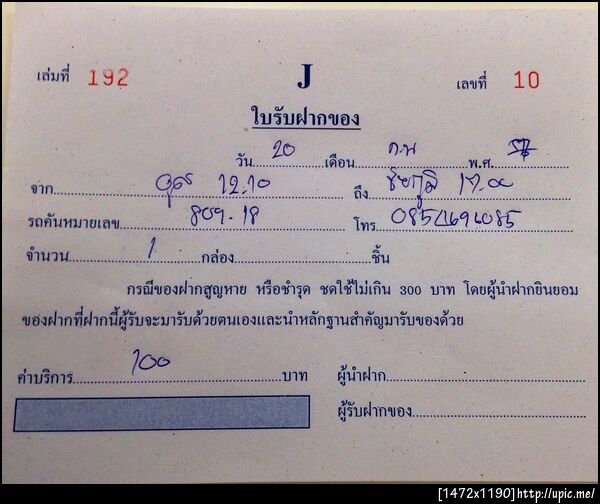 เล่มที่ 192 J เลขที่ 10
ใบรับฝากของ
วัน 20 เดือน ก.พ พ.ศ. 57
จาก 12.10 ถึง ชัยภูมิ 17.00
รถคันหมายเลข 809-18 โทร
จำนวน 1 กล่อง ชิ้น
กรณีของฝากสูญหาย หรือชำรุด ชดใช้ไม่เกิน 300 บาท โดยผู้นำฝากยินยอม
ของฝากที่ฝากนี้ผู้รับจะมารับด้วยตนเองและนำหลักฐานสำคัญมารับของด้วย
ค่าบริการ 100 บาท ผู้นำฝาก
ผู้รับฝากของ
[1472x1190]http://upic.me/